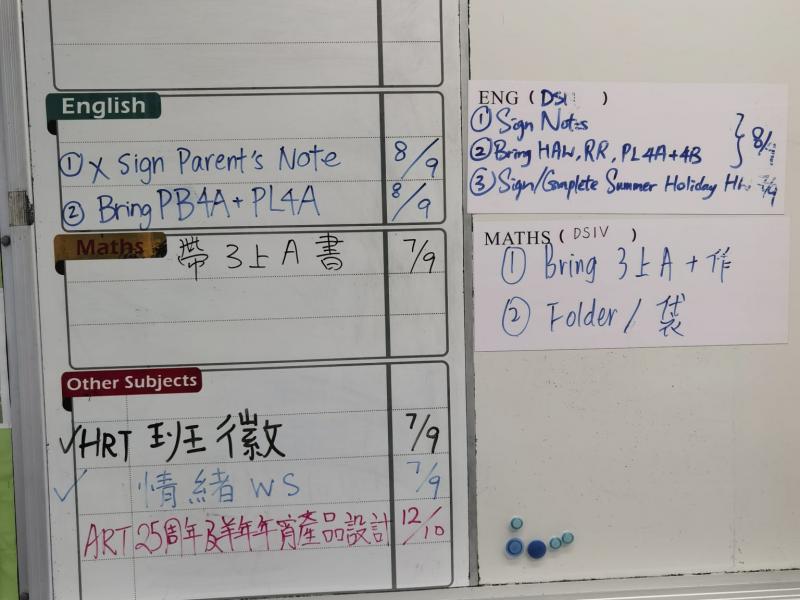 English
① X Sign Parent's Note 8/9
② Bring PB4A + PL4A 8/9
Maths 帶 3上A 書 7/9
Other Subjects
✓ HRT 班徽 7/9
✓ 情緒 WS 7/9
ART 25周年及羊年年宵產品設計 12/10
ENG (DSI )
① Sign Notes
② Bring HAW, RR, PL4A+4B } 8/
③ Sign/Complete Summer Holiday HW /9
MATHS (DSIV)
① Bring 3上A + 作
② Folder / 袋